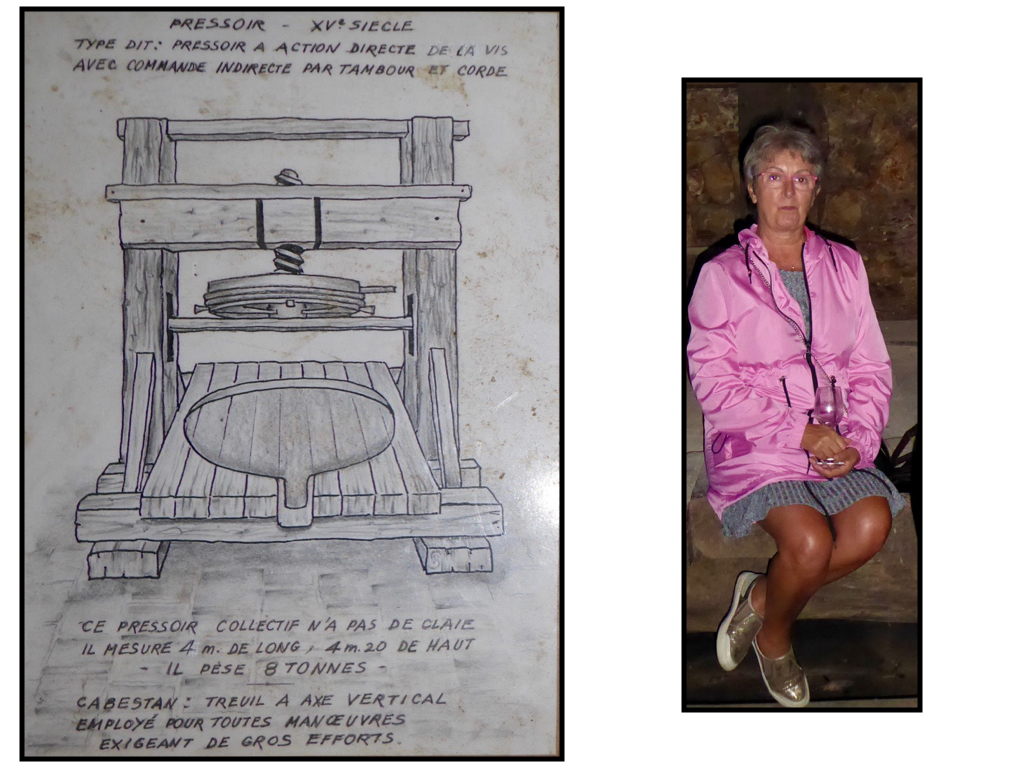 PRESSOIR - XVᵉ SIECLE
TYPE DIT: PRESSOIR A ACTION DIRECTE DE LA VIS
AVEC COMMANDE INDIRECTE PAR TAMBOUR ET CORDE
CE PRESSOIR COLLECTIF N'A PAS DE CLAIE
IL MESURE 4 m. DE LONG, 4 m.20 DE HAUT
- IL PÈSE 8 TONNES -
CABESTAN : TREUIL A AXE VERTICAL
EMPLOYÉ POUR TOUTES MANŒUVRES
EXIGEANT DE GROS EFFORTS.